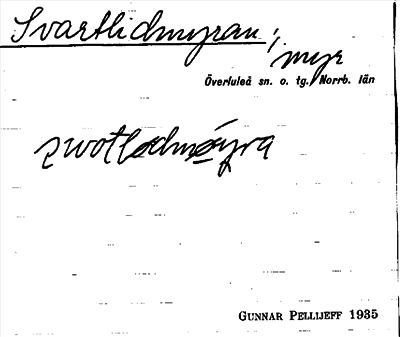 Svartlidmyran;
myr
Överluleå sn. o. tg., Norrb. län
GUNNAR PELLIJEFF 1935